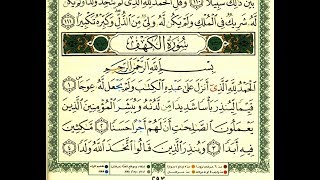 بَيْنَ ذَٰلِكَ سَبِيلًا ۝١١٠ وَقُلِ ٱلْحَمْدُ لِلَّهِ ٱلَّذِى لَمْ يَتَّخِذْ وَلَدًا وَلَمْ يَكُن
لَّهُۥ شَرِيكٌ فِى ٱلْمُلْكِ وَلَمْ يَكُن لَّهُۥ وَلِىٌّ مِّنَ ٱلذُّلِّ وَكَبِّرْهُ تَكْبِيرًۢا ۝١١١
سُورَةُ الكَهْفِ
بِسْمِ ٱللَّهِ ٱلرَّحْمَٰنِ ٱلرَّحِيمِ
ٱلْحَمْدُ لِلَّهِ ٱلَّذِىٓ أَنزَلَ عَلَىٰ عَبْدِهِ ٱلْكِتَٰبَ وَلَمْ يَجْعَل لَّهُۥ عِوَجَا ۝١
قَيِّمًا لِّيُنذِرَ بَأْسًا شَدِيدًا مِّن لَّدُنْهُ وَيُبَشِّرَ ٱلْمُؤْمِنِينَ ٱلَّذِينَ
يَعْمَلُونَ ٱلصَّٰلِحَٰتِ أَنَّ لَهُمْ أَجْرًا حَسَنًا ۝٢ مَّٰكِثِينَ
فِيهِ أَبَدًا ۝٣ وَيُنذِرَ ٱلَّذِينَ قَالُوا۟ ٱتَّخَذَ ٱللَّهُ وَلَدًا ۝٤
٢٩٣